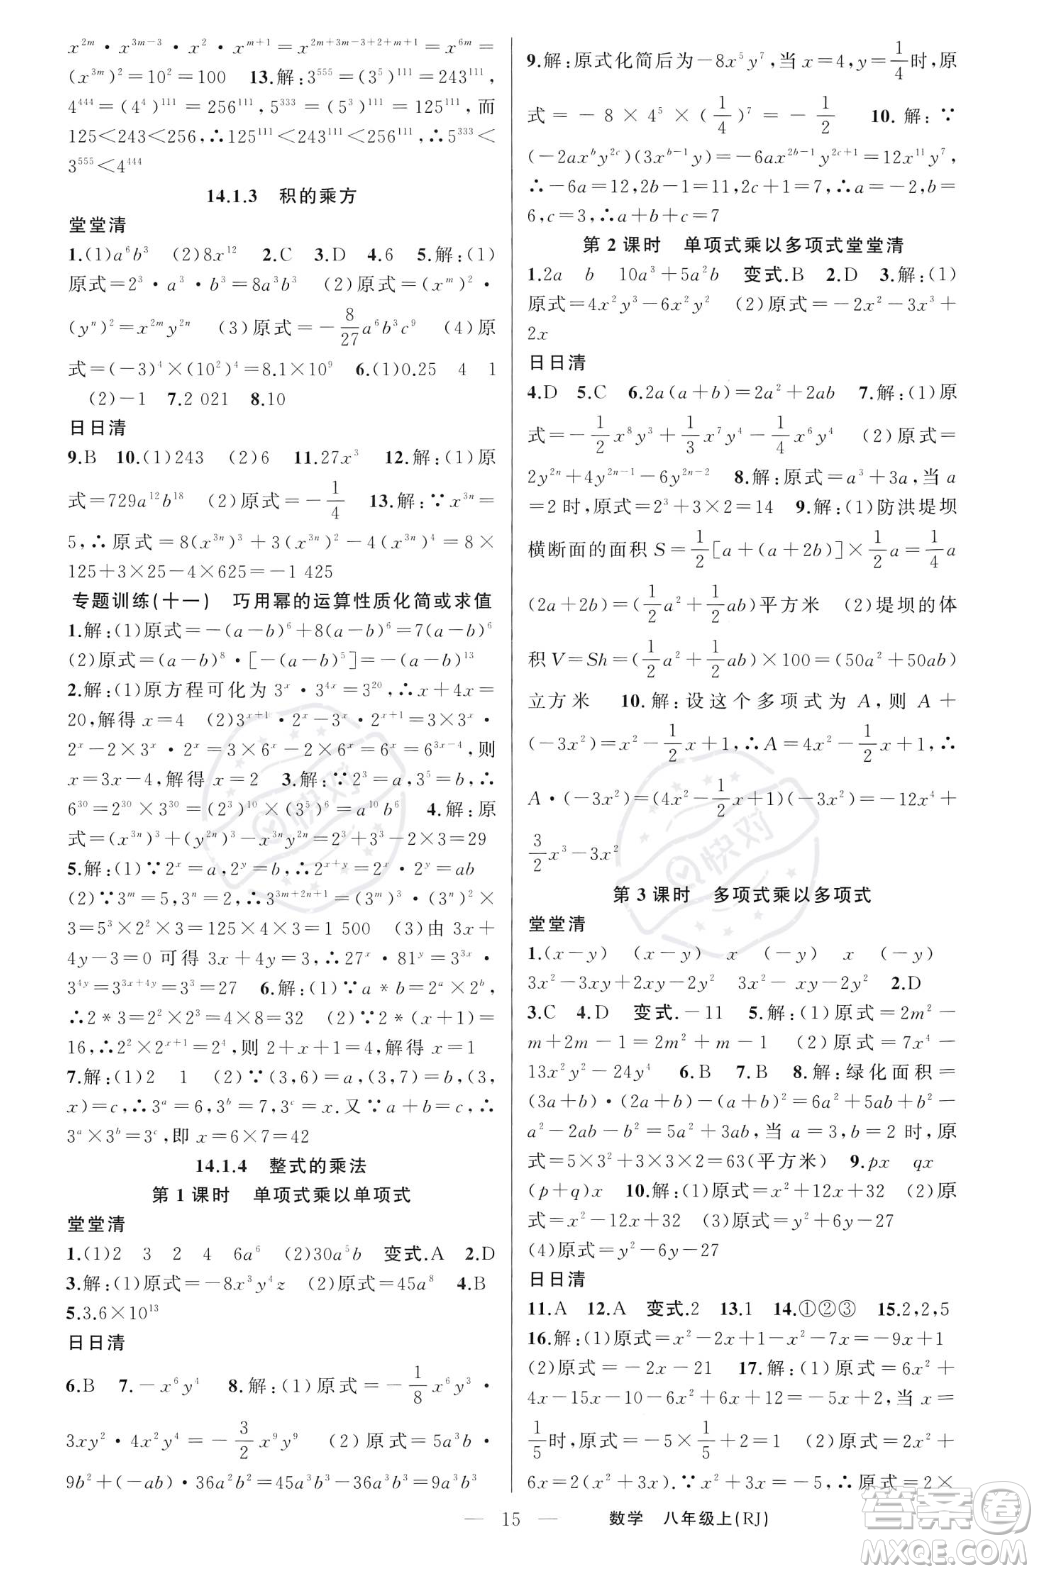 x^{2m}·x^{3m-3}·x^2·x^{m+1}=x^{2m+3m-3+2+m+1}=x^{6m}=
(x^{3m})^2=10^2=100 13.解:3^{555}=(3^5)^{111}=243^{111},
4^{444}=(4^4)^{111}=256^{111},5^{333}=(5^3)^{111}=125^{111},而
125<243<256,∴125^{111}<243^{111}<256^{111},∴5^{333}<
3^{555}<4^{444}
14.1.3 积的乘方
堂堂清
1.(1)a^6b^3 (2)8x^{12} 2.C 3.D 4.6 5.解:(1)
原式=2^3·a^3·b^3=8a^3b^3 (2)原式=(x^m)^2·
(y^n)^2=x^{2m}y^{2n} (3)原式=-\frac{8}{27}a^6b^3c^9 (4)原
式=(-3)^4×(10^2)^4=8.1×10^9 6.(1)0.25 4 1
(2)-1 7.2 021 8.10
日日清
9.B 10.(1)243 (2)6 11.27x^3 12.解:(1)原
式=729a^{12}b^{18} (2)原式=-\frac{1}{4} 13.解:∵x^{3n}=
5,∴原式=8(x^{3n})^3+3(x^{3n})^2-4(x^{3n})^4=8×
125+3×25-4×625=-1 425
专题训练(十一) 巧用幂的运算性质化简或求值
1.解:(1)原式=-(a-b)^6+8(a-b)^6=7(a-b)^6
(2)原式=(a-b)^8·[-(a-b)^5]=-(a-b)^{13}
2.解:(1)原方程可化为3^x·3^{4x}=3^{20},∴x+4x=
20,解得x=4 (2)3^{x+1}·2^x-3^x·2^{x+1}=3×3^x·
2^x-2×3^x·2^x=3×6^x-2×6^x=6^x=6^{3x-4},则
x=3x-4,解得x=2 3.解:∵2^3=a,3^5=b,∴
6^{30}=2^{30}×3^{30}=(2^3)^{10}×(3^5)^6=a^{10}b^6 4.解:原
式=(x^{3n})^3+(y^{2n})^3-x^{3n}y^{2n}=2^3+3^3-2×3=29
5.解:(1)∵2^x=a,2^y=b,∴2^{x+y}=2^x·2^y=ab
(2)∵3^m=5,3^n=2,∴3^{3m+2n+1}=(3^m)^3·(3^n)^2×
3=5^3×2^2×3=125×4×3=1 500 (3)由3x+
4y-3=0可得3x+4y=3,∴27^x·81^y=3^{3x}·
3^{4y}=3^{3x+4y}=3^3=27 6.解:(1)∵a*b=2^a×2^b,
∴2*3=2^2×2^3=4×8=32 (2)∵2*(x+1)=
16,∴2^2×2^{x+1}=2^4,则2+x+1=4,解得x=1
7.解:(1)2 1 (2)∵(3,6)=a,(3,7)=b,(3,
x)=c,∴3^a=6,3^b=7,3^c=x.又∵a+b=c,∴
3^a×3^b=3^c,即x=6×7=42
14.1.4 整式的乘法
第1课时 单项式乘以单项式
堂堂清
1.(1)2 3 2 4 6a^6 (2)30a^5b 变式.A 2.D
3.解:(1)原式=-8x^3y^4z (2)原式=45a^8 4.B
5.3.6×10^{13}
日日清
6.B 7.-x^6y^4 8.解:(1)原式=-\frac{1}{8}x^6y^3·
3xy^2·4x^2y^4=-\frac{3}{2}x^9y^9 (2)原式=5a^3b·
9b^2+(-ab)·36a^2b^2=45a^3b^3-36a^3b^3=9a^3b^3
9.解:原式化简后为-8x^5y^7,当x=4,y=\frac{1}{4}时,原
式=-8×4^5×(\frac{1}{4})^7=-\frac{1}{2} 10.解:∵
(-2ax^by^{2c})(3x^{b-1}y)=-6ax^{2b-1}y^{2c+1}=12x^{11}y^7,
∴-6a=12,2b-1=11,2c+1=7,∴a=-2,b=
6,c=3,∴a+b+c=7
第2课时 单项式乘以多项式堂堂清
1.2a b 10a^3+5a^2b 变式.B 2.D 3.解:(1)
原式=4x^2y^3-6x^2y^2 (2)原式=-2x^2-3x^3+
2x
日日清
4.D 5.C 6.2a(a+b)=2a^2+2ab 7.解:(1)原
式=-\frac{1}{2}x^8y^3+\frac{1}{3}x^7y^4-\frac{1}{4}x^6y^4 (2)原式=
2y^{2n}+4y^{2n-1}-6y^{2n-2} 8.解:原式=a^3+3a,当
a=2时,原式=2^3+3×2=14 9.解:(1)防洪堤坝
横断面的面积S=\frac{1}{2}[a+(a+2b)]×\frac{1}{2}a=\frac{1}{4}a
(2a+2b)=(\frac{1}{2}a^2+\frac{1}{2}ab)平方米 (2)堤坝的体
积V=Sh=(\frac{1}{2}a^2+\frac{1}{2}ab)×100=(50a^2+50ab)
立方米 10.解:设这个多项式为A,则A+
(-3x^2)=x^2-\frac{1}{2}x+1,∴A=4x^2-\frac{1}{2}x+1,∴
A·(-3x^2)=(4x^2-\frac{1}{2}x+1)(-3x^2)=-12x^4+
\frac{3}{2}x^3-3x^2
第3课时 多项式乘以多项式
堂堂清
1.(x-y) (x-y) x (x-y) x (x-y)
3x^2-3xy+2xy-2y^2 3x^2-xy-2y^2 2.D
3.C 4.D 变式.-11 5.解:(1)原式=2m^2-
m+2m-1=2m^2+m-1 (2)原式=7x^4-
13x^2y^2-24y^4 6.B 7.B 8.解:绿化面积=
(3a+b)(2a+b)-(a+b)^2=6a^2+5ab+b^2-
a^2-2ab-b^2=5a^2+3ab.当a=3,b=2时,原
式=5×3^2+3×3×2=63(平方米) 9.px qx
(p+q)x 10.解:(1)原式=x^2+12x+32 (2)原
式=x^2-10x+16 (3)原式=y^2+6y-27
(4)原式=y^2-6y-27
日日清
11.A 12.A 变式.2 13.1 14.①②③ 15.2,2,5
16.解:(1)原式=x^2-2x+1-x^2-7x=-9x+1
(2)原式=-x^2-2x-21 17.解:(1)原式=6x^2+
4x-15x-10-6x^2+6x+12=-5x+2,当x=
\frac{1}{5}时,原式=-5×\frac{1}{5}+2=1 (2)原式=2x^2+
6x=2(x^2+3x).∵x^2+3x=-5,∴原式=2×
— 15 — 数学 八年级上(RJ)
快对
答案圈
MXQE.COM